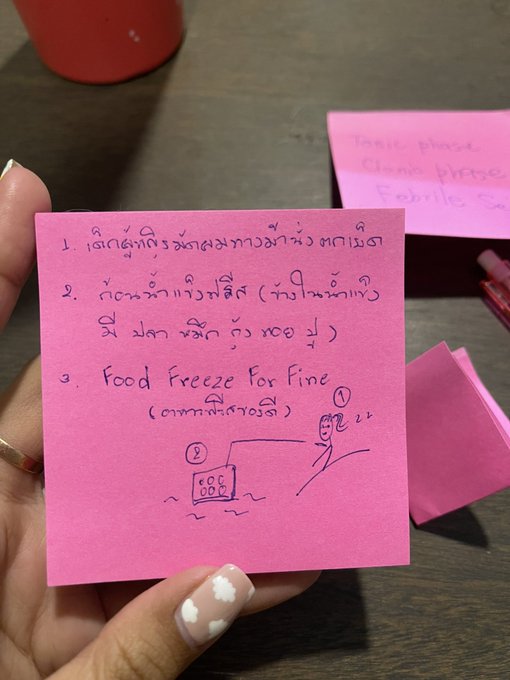 1. เด็กผู้หญิงมัดผมหางม้านั่งตกเบ็ด
2. ก้อนน้ำแข็งฟรีส (ข้างในน้ำแข็ง
มี ปลา หมึก กุ้ง หอย ปู)
3. Food Freeze For Fine
(อาหารฟรีสของดี)
1
2
zz
Tonic phase
Clonic phase
Febrile Se